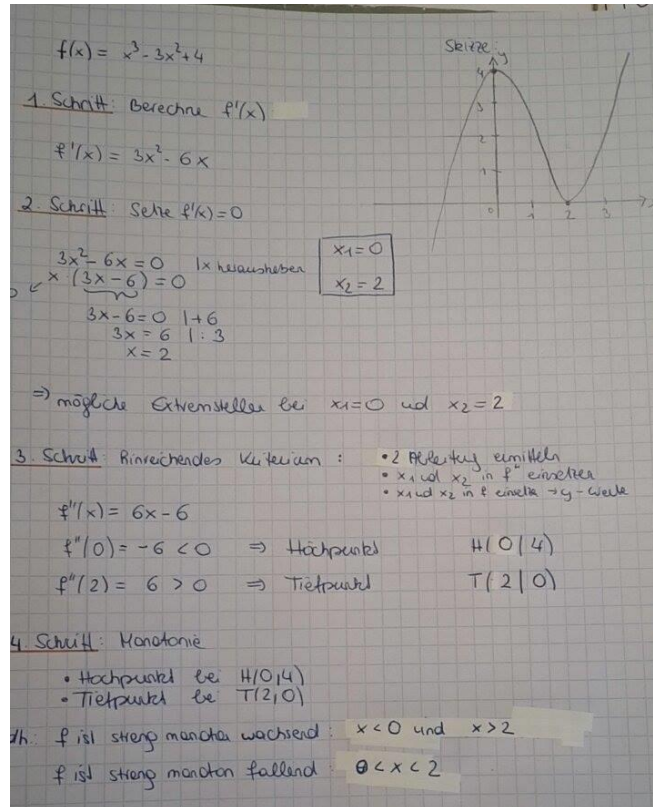 f(x) = x³-3x²+4
Skizze:
y
4
3
2
1
0 1 2 3
1. Schritt: Berechne f'(x)
f'(x) = 3x²-6x
2. Schritt: Setze f'(x)=0
3x²-6x=0 |x herausheben
x·(3x-6)=0
x1=0
x2=2
3x-6=0 |+6
3x=6 |:3
x=2
⇒ mögliche Extremstellen bei x1=0 und x2=2
3. Schritt: Hinreichendes Kriterium:
• 2 Ableitung ermitteln
• x1 und x2 in f'' einsetzen
• x1 und x2 in f einsetzen → y-Werte
f''(x) = 6x-6
f''(0) = -6 < 0 ⇒ Hochpunkt H(0|4)
f''(2) = 6 > 0 ⇒ Tiefpunkt T(2|0)
4. Schritt: Monotonie
• Hochpunkt bei H(0,4)
• Tiefpunkt be T(2,0)
dh: f ist streng monoton wachsend: x<0 und x>2
f ist streng monoton fallend: 0<x<2